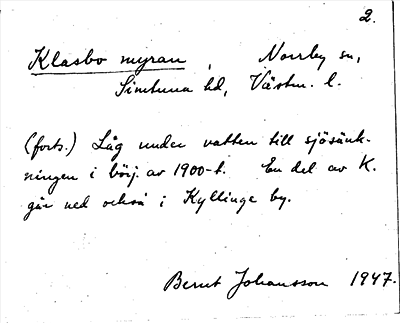 2.
Klasbo myran, Norrby sn,
Simtuna hd, Västm. l.
(forts.) Låg under vatten till sjösänk-
ningen i börj. av 1900-t. En del av K.
går ned också i Kyllinge by.
Bernt Johansson 1947.